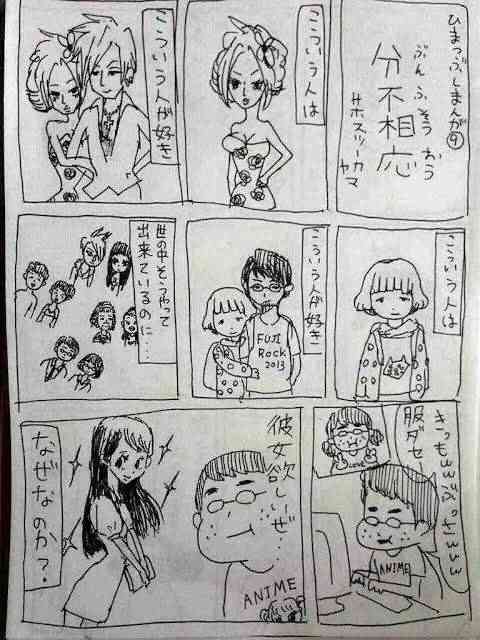 ひまつぶしまんが⑨
ぶんふそうおう
分不相応
こういう人は
こういう人が好き
こういう人は
こういう人が好き
FUJI
Rock
2013
世の中そうやって
出来ているのに…
きっもwwwぶっさwww
服ダセー
ANIME
彼女欲しいぜ…
ANIME
なぜなのか?